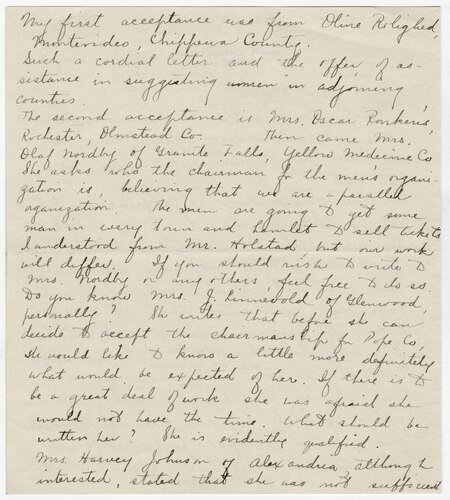 My first acceptance was from Oline Rolighed,
Montevideo, Chippewa County.
Such a cordial letter and the offer of as-
sistance in suggesting women in adjoining
counties.
The second acceptance is Mrs. Oscar
Rochester, Olmstead Co. Then came Mrs.
Olaf Nordby of Granite Falls, Yellow Medicine Co
She asks who the chairman for the mens organi-
zation is, believing that we are a parallel
oganization. The men are going to get some
man in every town and hamlet to sell tickets
I understood from Mr. Holstad but our work
will differ. If you should wish to write to
Mrs. Nordby or any others feel free to do so.
Do you know Mrs. J. Linnevold of Glenwood,
personally? She writes that before she can
decide to accept the chairmanship for Pope Co,
she would like to know a little more definitely
what would be expected of her. If there is to
be a great deal of work she was afraid she
would not have the time. What should be
written her? She is evidently qualified.
Mrs. Harvey Johnson of Alexandria, although
interested, stated that she was not